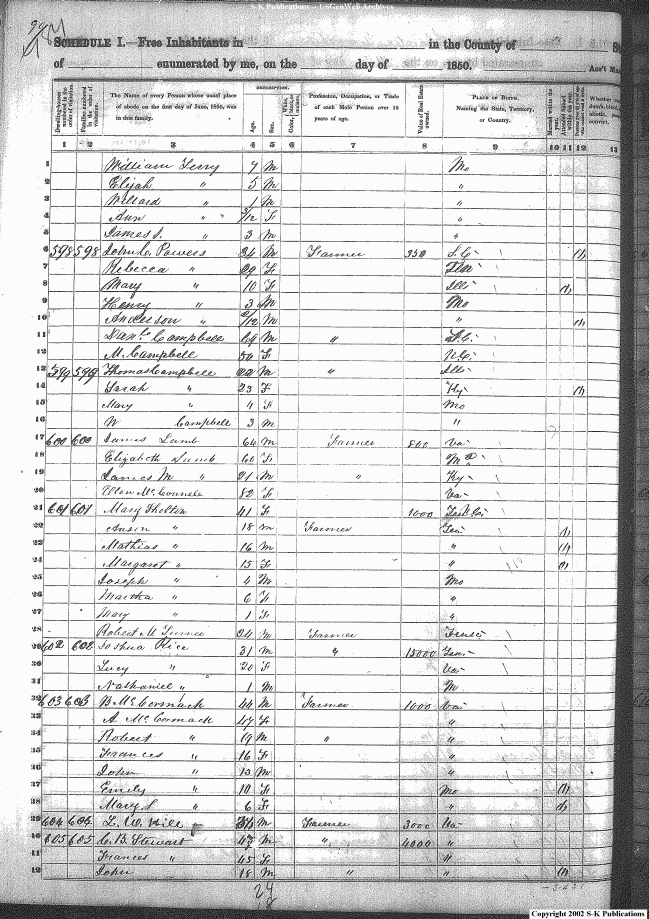 S-K Publications - UsGenWeb Archives
SCHEDULE I.—Free Inhabitants in in the County of
of enumerated by me, on the day of 1850.
DESCRIPTION.
Dwelling-houses numbered in the order of visitation.
Families numbered in the order of visitation.
The Name of every Person whose usual place of abode on the first day of June, 1850, was in this family.
Age.
Sex.
Profession, Occupation, or Trade of each Male Person over 15 years of age.
Value of Real Estate owned.
PLACE OF BIRTH. Naming the State, Territory, or Country.
1 2 3 4 5 6 7 8 9 10 11 12 13
1 William 7 M Mo
2 Elijah " 5 M "
3 Willard " 1 M "
4 Ann " 3/12 F "
5 James S. " 3 M "
6 598 598 John C. Powers 34 M Farmer 350 S.C.
7 Rebecca " 29 F Ten
8 Mary " 10 F Ills
9 Henry " 3 M Mo
10 Anderson " 2/12 M "
11 Danl. Campbell 64 M " S.C.
12 M. Campbell 50 F N.C.
13 599 599 Thomas Campbell 22 M " Ills
14 Sarah " 23 F Ky
15 Mary " 4 F Mo
16 W Campbell 3 M "
17 600 600 James Lamb 64 M Farmer 800 Va
18 Elizabeth Lamb 60 F Md
19 James M " 21 M " Ky
20 Ellen McConnell 82 F Va
21 601 601 Mary Shelton 41 F 1000
22 Anson " 18 M Farmer Ten
23 Mathias " 16 M "
24 Margaret " 15 F "
25 Joseph " 4 M Mo
26 Martha " 6 F "
27 Mary " 1 F "
28 Robert M Turner 24 M Farmer
29 602 602 Joshua Rice 31 M " 15000 Ten
30 Lucy " 20 F Va
31 Nathaniel " 1 M M
32 603 603 B McCormack 44 M Farmer 1000 Va
33 A McCormack 47 F "
34 Robert " 19 M " "
35 Frances " 16 F "
36 John " 13 M "
37 Emily " 10 F Mo
38 Mary S " 6 F "
39 604 604 L. W. Hill 34 M Farmer 3000 Va
40 605 605 C. B. Stewart 47 M " 4000 "
41 Frances " 45 F "
42 John 18 M " "
24
18
Copyright 2002 S-K Publications